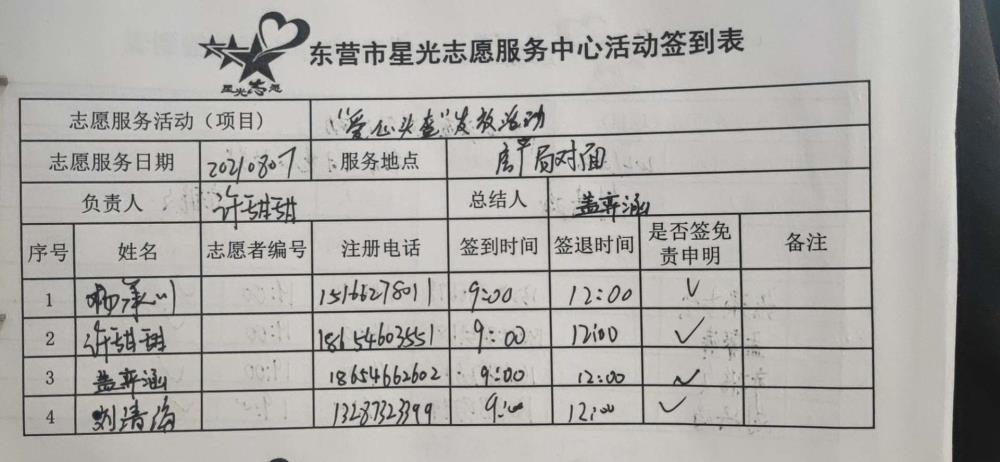 星光志愿
东营市星光志愿服务中心活动签到表
志愿服务活动（项目） “爱心头盔”发放活动
志愿服务日期 20210807 服务地点 局对面
负责人 许甜甜 总结人 盖弈涵
序号 姓名 志愿者编号 注册电话 签到时间 签退时间 是否签免责申明 备注
1 杨承川 15166278011 9:00 12:00 ✓
2 许甜甜 18654603551 9:00 12:00 ✓
3 盖弈涵 18654662602 9:00 12:00 ✓
4 刘清海 13287323399 9:00 12:00 ✓